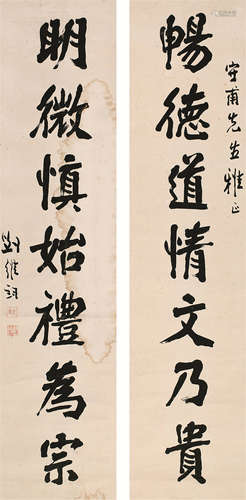 甫先生雅正
暢德道情文乃貴
明微慎始禮為宗
劉維